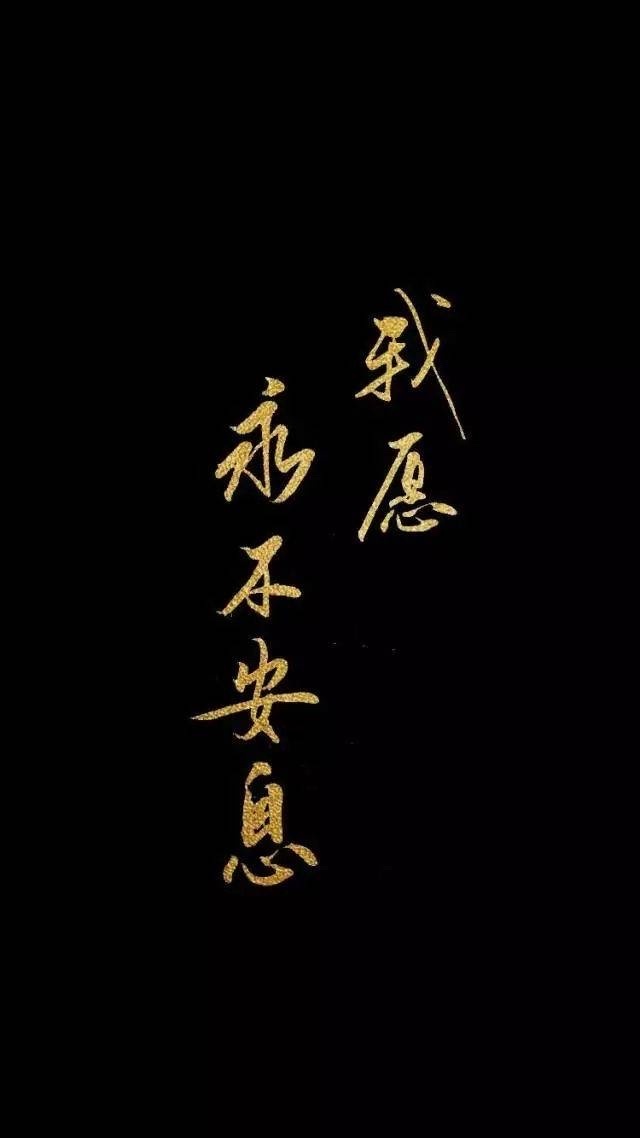 我愿
永不安息